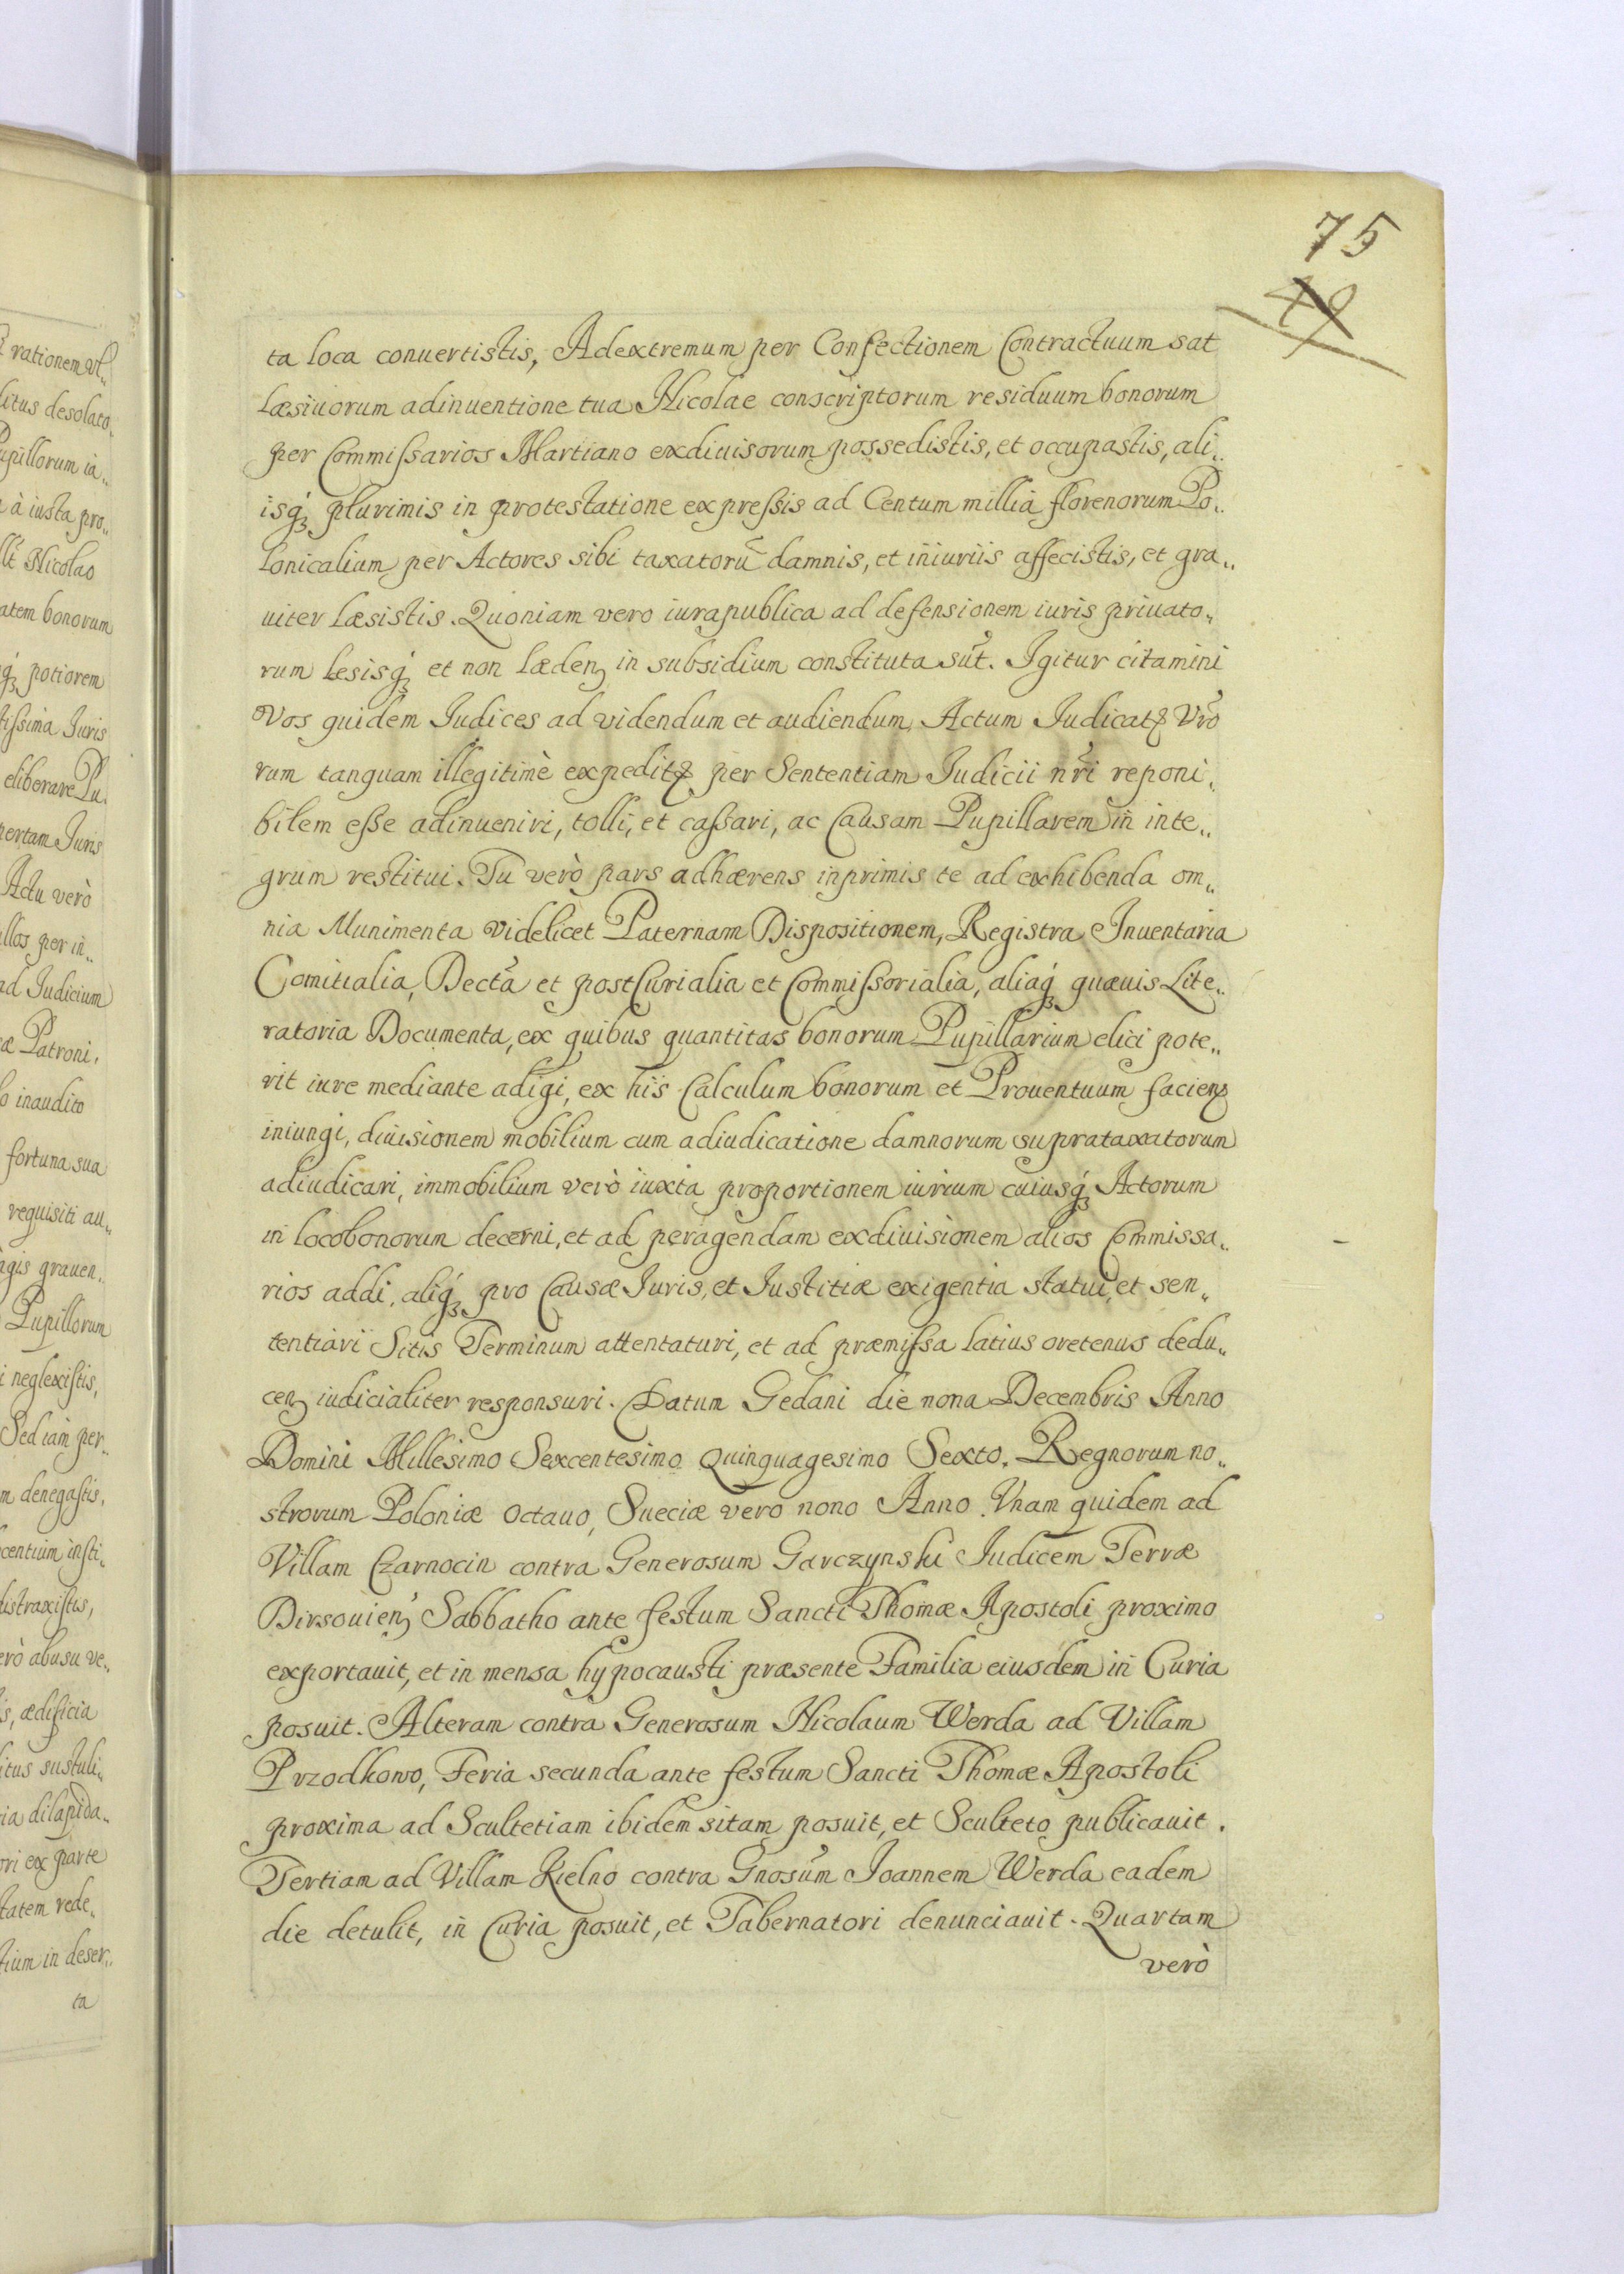 75
49
ta loca conuertistis, Adextremum per Confectionem Contractuum sat
Læsiuorum adinuentione tua Nicolae conscriptorum residuum bonorum
per Commissarios Martiano exdiuisorum possedistis, et occupastis, ali„
isq́ꝫ plurimis in protestatione expressis ad Centum millia florenorum Po„
lonicalium per Actores sibi taxatorū damnis, et iniuriis affecistis, et gra„
uiter Læsistis. Quoniam vero iura publica ad defensionem iuris priuato„
rum Lesisq́ꝫ et non Lædenꝫ in subsidium constituta sūt. Igitur citamini
Vos quidem Iudices ad videndum et audiendum, Actum Iudicatꝫ Vr̄o
rum tanquam illegitimè expeditꝫ per Sententiam Iudicii nr̄i reponi„
bilem esse adinueniri, tolli, et cassari, ac Causam Pupillarem in inte„
grum restitui. Tu verò pars adhærens inprimis te ad exhibenda om„
nia Munimenta videlicet Paternam Dispositionem, Registra Inuentaria
Comitialia, Decta et postCurialia et Commissorialia, aliaq́ꝫ quæuis Lite„
ratoria Documenta, ex quibus quantitas bonorum Pupillarium elici pote„
rit iure mediante adigi, ex his Calculum bonorum et Prouentuum facienꝫ
iniungi, diuisionem mobilium cum adiudicatione damnorum suprataxatorum
adiudicari, immobilium verò iuxta proportionem iurium cuiusq́ꝫ Actorum
in loco bonorum decerni, et ad peragendam exdiuisionem alios Commissa„
rios addi, aliq́ꝫ pro Causæ Iuris, et Iustitiæ exigentia statui, et sen„
tentiari Sitis Terminum attentaturi, et ad præmissa latius oretenus dedu„
cenꝫ iudicialiter responsuri. Datum Gedani die nona Decembris Anno
Domini Millesimo Sexcentesimo Quinquagesimo Sexto. Regnorum no„
strorum Poloniæ Octauo, Sueciæ vero nono Anno. Vnam quidem ad
Villam Czarnocin contra Generosum Garczynski Iudicem Terræ
Dirsouienꝫ Sabbatho ante festum Sancti Thomæ Apostoli proximo
exportauit, et in mensa hypocausti præsente Familia eiusdem in Curia
posuit. Alteram contra Generosum Nicolaum Werda ad Villam
Przodkowo, Feria secunda ante festum Sancti Thomæ Apostoli
proxima ad Scultetiam ibidem sitam posuit, et Sculteto publicauit.
Tertiam ad Villam Kielno contra Gnosum Ioannem Werda eadem
die detulit, in Curia posuit, et Tabernatori denunciauit. Quartam
verò